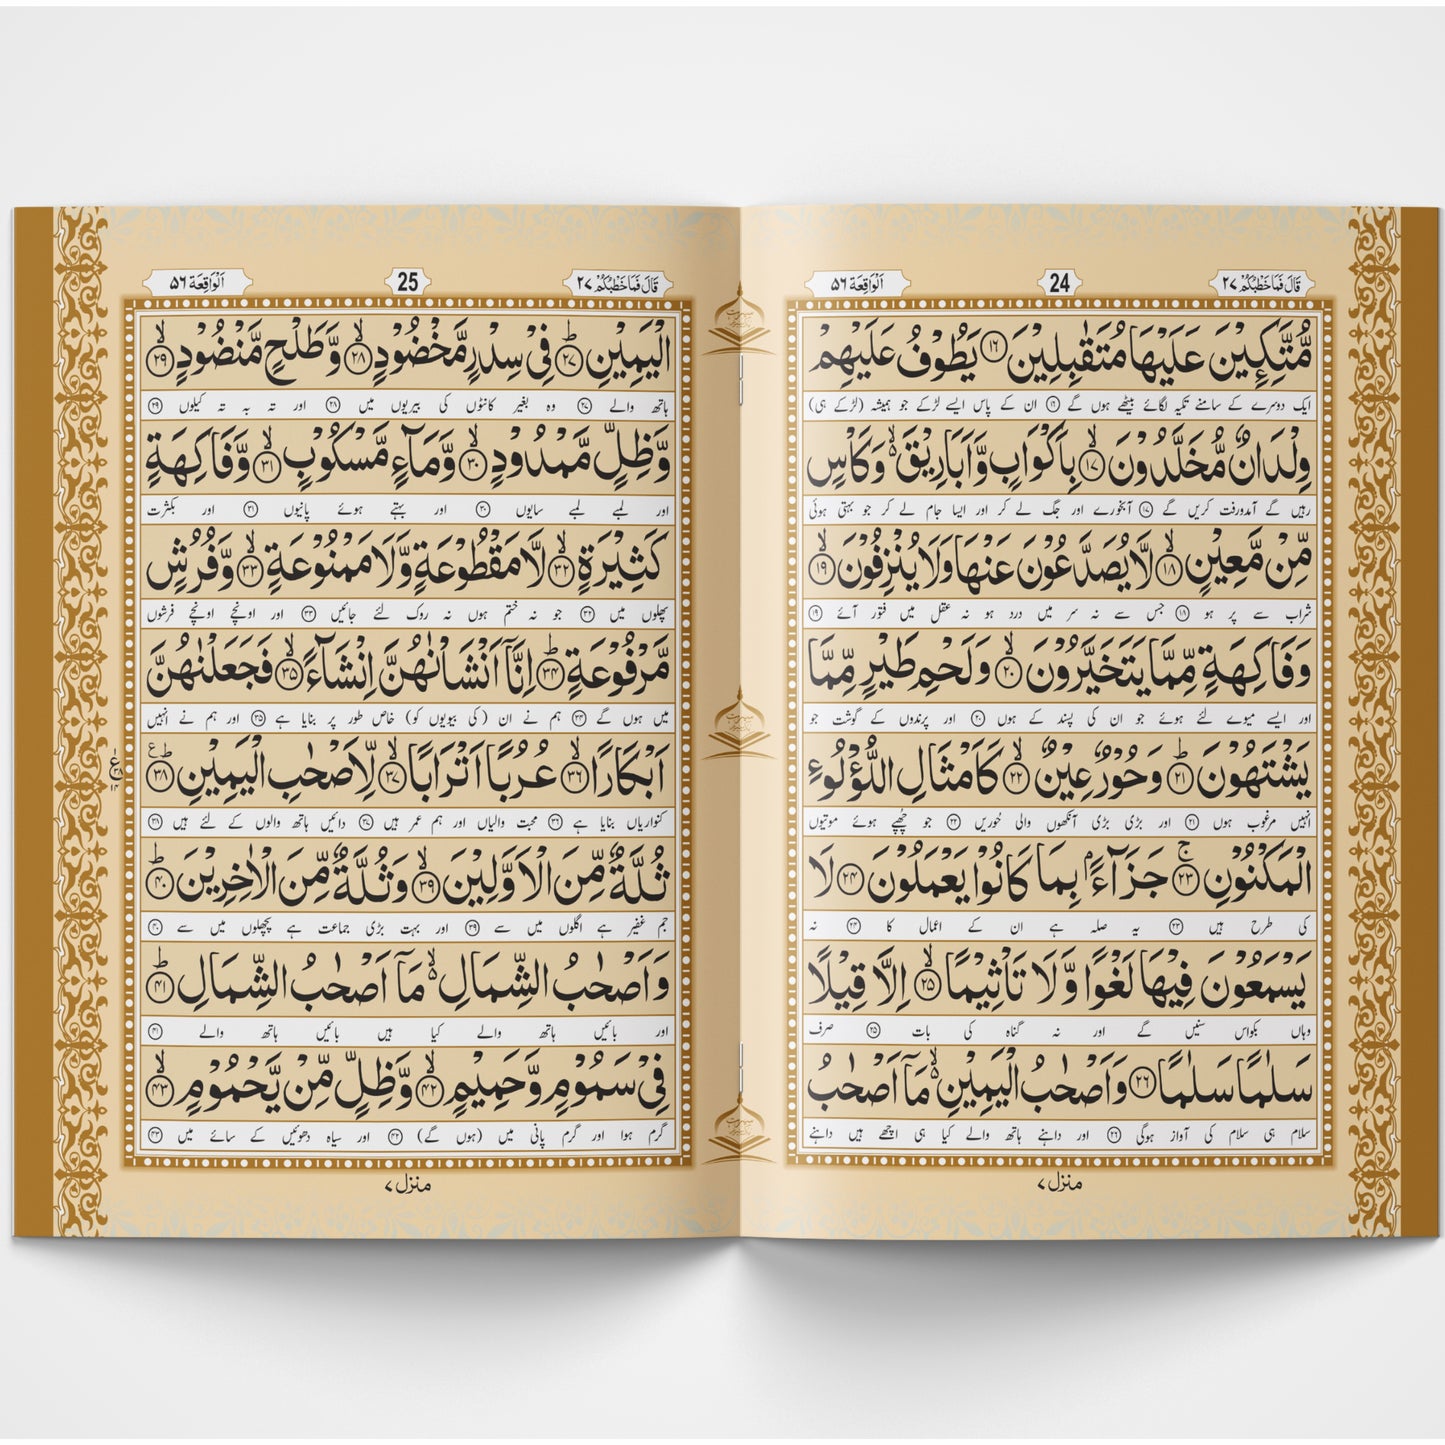 قَالَ فَمَا خَطْبُكُمْ ٢٧
24
اَلْوَاقِعَة ٥٦
مُّتَّكِـِٕيْنَ عَلَيْهَا مُتَقٰبِلِيْنَ ﴿١٦﴾ يَطُوْفُ عَلَيْهِمْ
ایک دوسرے کے سامنے تکیہ لگائے بیٹھے ہوں گے ﴿١٦﴾ ان کے پاس ایسے لڑکے جو ہمیشہ (لڑکے ہی)
وِلْدَانٌ مُّخَلَّدُوْنَ ﴿١٧﴾ بِاَكْوَابٍ وَّاَبَارِيْقَ ۙ وَكَاْسٍ
رہیں گے آمدورفت کریں گے ﴿١٧﴾ آبخورے اور جگ لے کر اور ایسا جام لے کر جو بہتی ہوئی
مِّنْ مَّعِيْنٍ ﴿١٨﴾ لَّا يُصَدَّعُوْنَ عَنْهَا وَلَا يُنْزِفُوْنَ ﴿١٩﴾
شراب سے پر ہو ﴿١٨﴾ جس سے نہ سر میں درد ہو نہ عقل میں فتور آئے ﴿١٩﴾
وَفَاكِهَةٍ مِّمَّا يَتَخَيَّرُوْنَ ﴿٢٠﴾ وَلَحْمِ طَيْرٍ مِّمَّا
اور ایسے میوے لئے ہوئے جو ان کی پسند کے ہوں ﴿٢٠﴾ اور پرندوں کے گوشت جو
يَشْتَهُوْنَ ﴿٢١﴾ وَحُوْرٌ عِيْنٌ ﴿٢٢﴾ كَاَمْثَالِ اللُّؤْلُوءِ
انہیں مرغوب ہوں ﴿٢١﴾ اور بڑی بڑی آنکھوں والی حُوریں ﴿٢٢﴾ جو چُھپے ہوئے موتیوں
الْمَكْنُوْنِ ﴿٢٣﴾ جَزَآءًۢ بِمَا كَانُوْا يَعْمَلُوْنَ ﴿٢٤﴾ لَا
کی طرح ہیں ﴿٢٣﴾ یہ صلہ ہے ان کے اعمال کا ﴿٢٤﴾ نہ
يَسْمَعُوْنَ فِيْهَا لَغْوًا وَّلَا تَاْثِيْمًا ﴿٢٥﴾ اِلَّا قِيْلًا
وہاں بکواس سنیں گے اور نہ گناہ کی بات ﴿٢٥﴾ صرف
سَلٰمًا سَلٰمًا ﴿٢٦﴾ وَاَصْحٰبُ الْيَمِيْنِ ۙ مَآ اَصْحٰبُ
سلام ہی سلام کی آواز ہوگی ﴿٢٦﴾ اور داہنے ہاتھ والے کیا ہی اچھے ہیں داہنے
منزل ٧
قَالَ فَمَا خَطْبُكُمْ ٢٧
25
اَلْوَاقِعَة ٥٦
الْيَمِيْنِ ﴿٢٧﴾ فِيْ سِدْرٍ مَّخْضُوْدٍ ﴿٢٨﴾ وَّطَلْحٍ مَّنْضُوْدٍ ﴿٢٩﴾
ہاتھ والے ﴿٢٧﴾ وہ بغیر کانٹوں کی بیریوں میں ﴿٢٨﴾ اور تہ بہ تہ کیلوں ﴿٢٩﴾
وَّظِلٍّ مَّمْدُوْدٍ ﴿٣٠﴾ وَّمَآءٍ مَّسْكُوْبٍ ﴿٣١﴾ وَّفَاكِهَةٍ
اور لمبے لمبے سایوں ﴿٣٠﴾ اور بہتے ہوئے پانیوں ﴿٣١﴾ اور بکثرت
كَثِيْرَةٍ ﴿٣٢﴾ لَّا مَقْطُوْعَةٍ وَّلَا مَمْنُوْعَةٍ ﴿٣٣﴾ وَّفُرُشٍ
پھلوں میں ﴿٣٢﴾ جو نہ ختم ہوں نہ روک لئے جائیں ﴿٣٣﴾ اور اونچے اونچے فرشوں
مَّرْفُوْعَةٍ ﴿٣٤﴾ اِنَّآ اَنْشَاْنٰهُنَّ اِنْشَآءً ﴿٣٥﴾ فَجَعَلْنٰهُنَّ
میں ہوں گے ﴿٣٤﴾ ہم نے ان (کی بیویوں کو) خاص طور پر بنایا ہے ﴿٣٥﴾ اور ہم نے انہیں
اَبْكَارًا ﴿٣٦﴾ عُرُبًا اَتْرَابًا ﴿٣٧﴾ لِّاَصْحٰبِ الْيَمِيْنِ ﴿٣٨﴾
کنواریاں بنایا ہے ﴿٣٦﴾ محبت والیاں اور ہم عمر ہیں ﴿٣٧﴾ دائیں ہاتھ والوں کے لئے ہیں ﴿٣٨﴾
ثُلَّةٌ مِّنَ الْاَوَّلِيْنَ ﴿٣٩﴾ وَثُلَّةٌ مِّنَ الْاٰخِرِيْنَ ﴿٤٠﴾
جم غفیر ہے اگلوں میں سے ﴿٣٩﴾ اور بہت بڑی جماعت ہے پچھلوں میں سے ﴿٤٠﴾
وَاَصْحٰبُ الشِّمَالِ ۙ مَآ اَصْحٰبُ الشِّمَالِ ﴿٤١﴾
اور بائیں ہاتھ والے کیا ہیں بائیں ہاتھ والے ﴿٤١﴾
فِيْ سَمُوْمٍ وَّحَمِيْمٍ ﴿٤٢﴾ وَّظِلٍّ مِّنْ يَّحْمُوْمٍ ﴿٤٣﴾
گرم ہوا اور گرم پانی میں (ہوں گے) ﴿٤٢﴾ اور سیاہ دھوئیں کے سائے میں ﴿٤٣﴾
منزل ٧